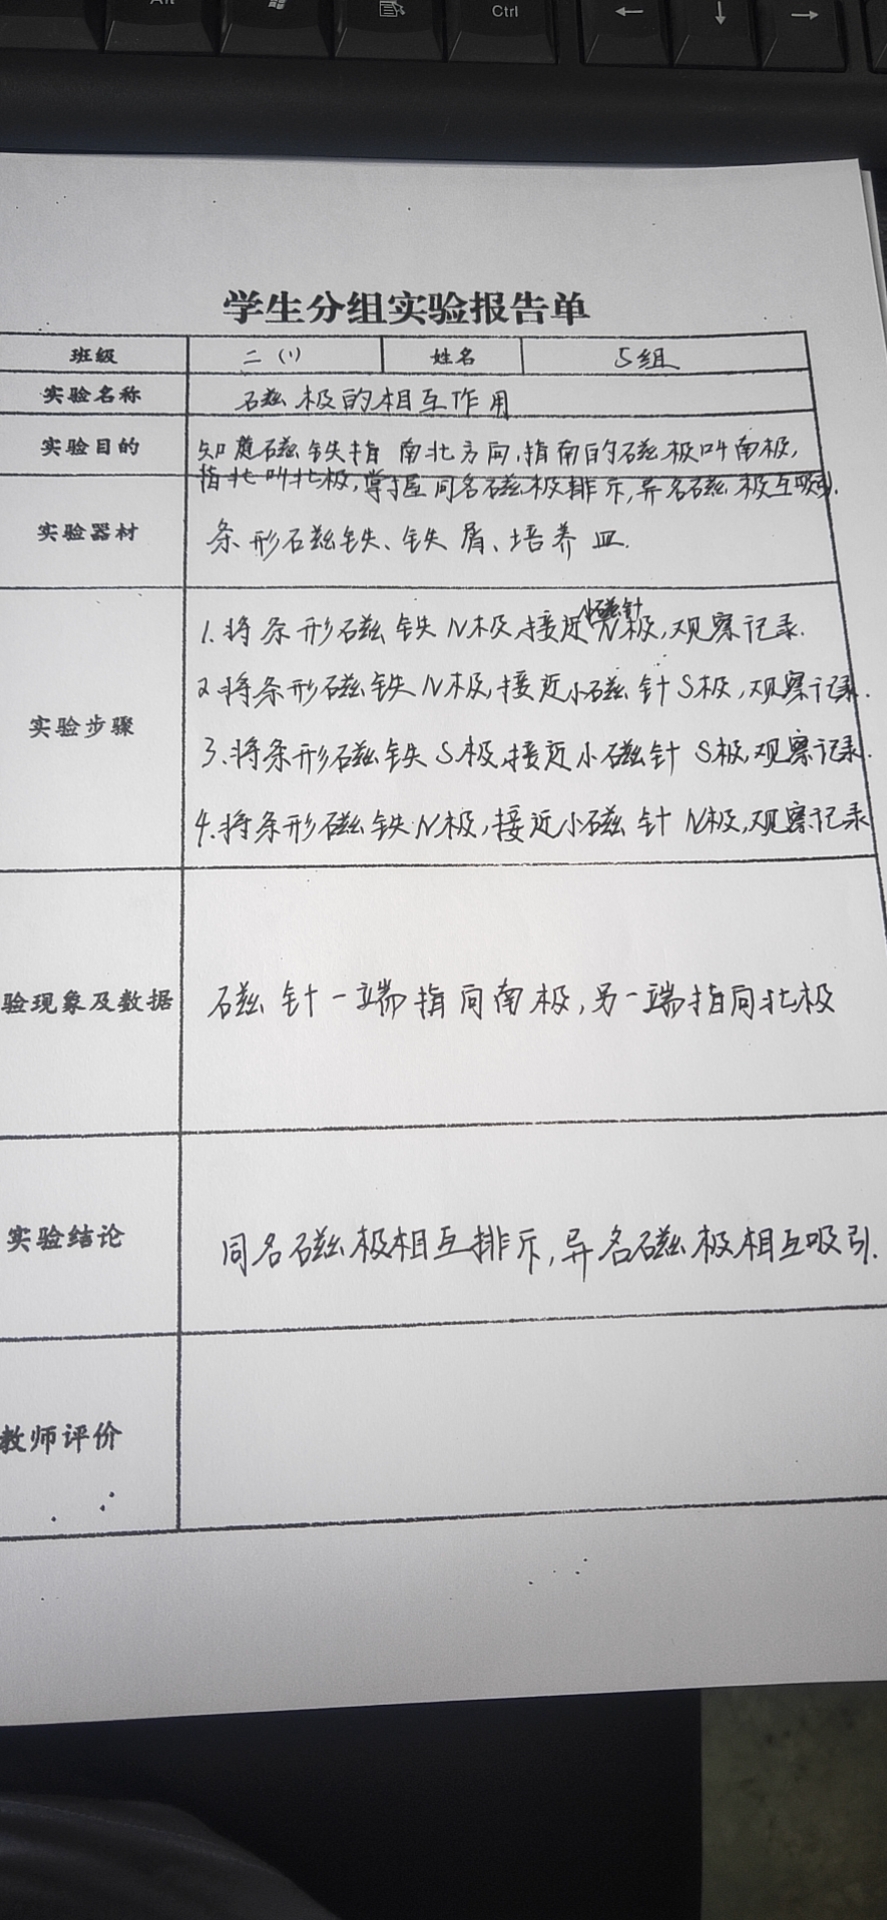 Alt
Ctrl
← ↓ →
学生分组实验报告单
班级 二(1) 姓名 5组
实验名称 磁极的相互作用
实验目的 知道磁铁指南北方向,指南的磁极叫南极,
指北叫北极,掌握同名磁极排斥,异名磁极互吸引.
实验器材 条形磁铁、铁屑、培养皿.
小磁针
1.将条形磁铁N极,接近N极,观察记录.
2.将条形磁铁N极,接近小磁针S极,观察记录.
实验步骤
3.将条形磁铁S极,接近小磁针S极,观察记录.
4.将条形磁铁N极,接近小磁针N极,观察记录
验现象及数据 磁针一端指向南极,另一端指向北极
实验结论 同名磁极相互排斥,异名磁极相互吸引.
教师评价